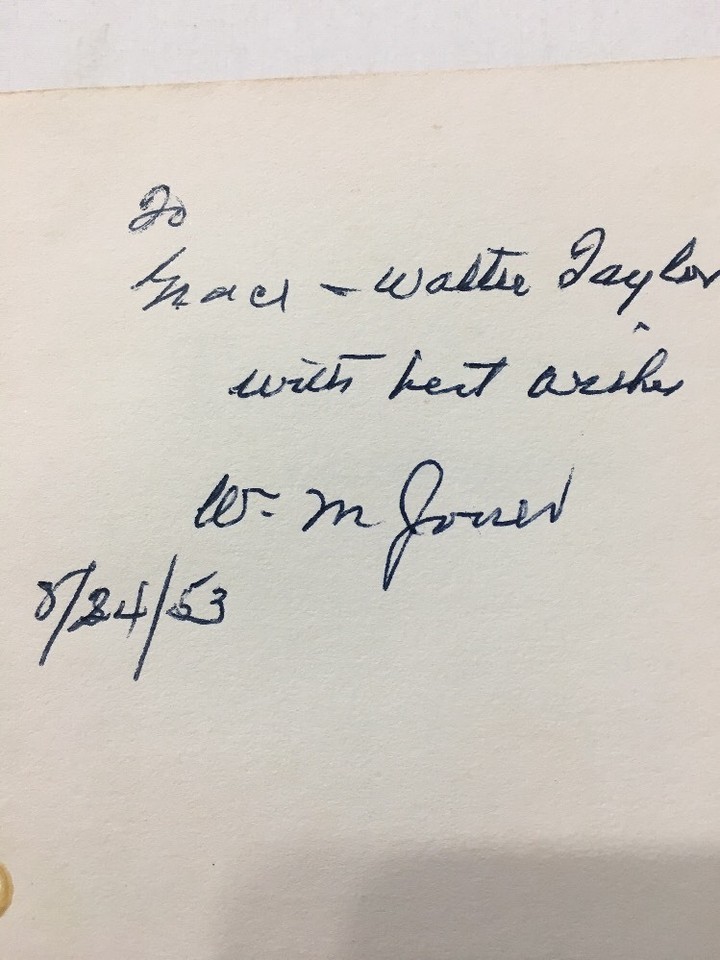 To
Grace - Walter Taylor
with best wishes
W. M Jones
8/24/53